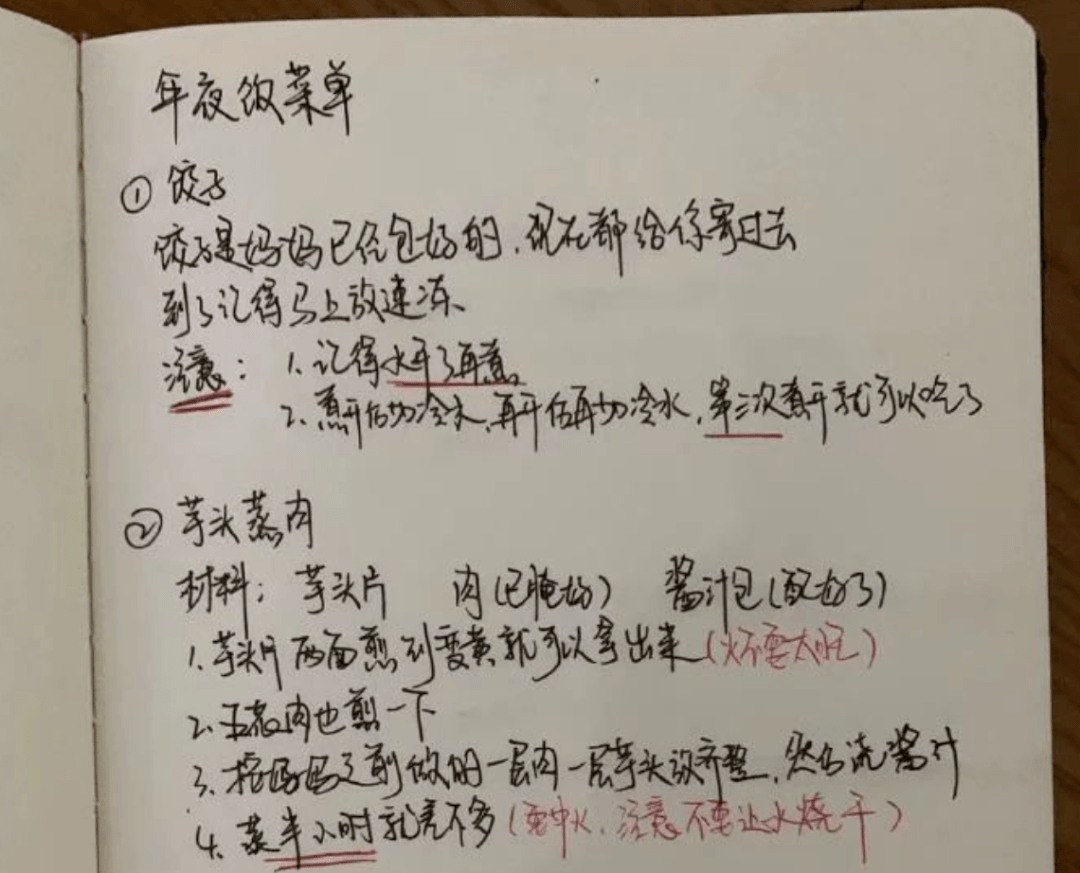 年夜饭菜单
① 饺子
饺子是妈妈已经包好的，现在都给你寄过去
到了记得马上放速冻、
注意： 1、记得水开了再煮
2、煮开后加冷水，再开后再加冷水，第三次煮开就可以吃了
② 芋头蒸肉
材料： 芋头片 肉（已腌好） 酱汁包（配好了）
1、芋头片两面煎到变黄就可以拿出来（火不要太旺）
2、五花肉也煎一下
3、按妈妈之前做的一层肉一层芋头放齐整，然后浇酱汁
4、蒸半小时就差不多（要中火，注意不要让水烧干）